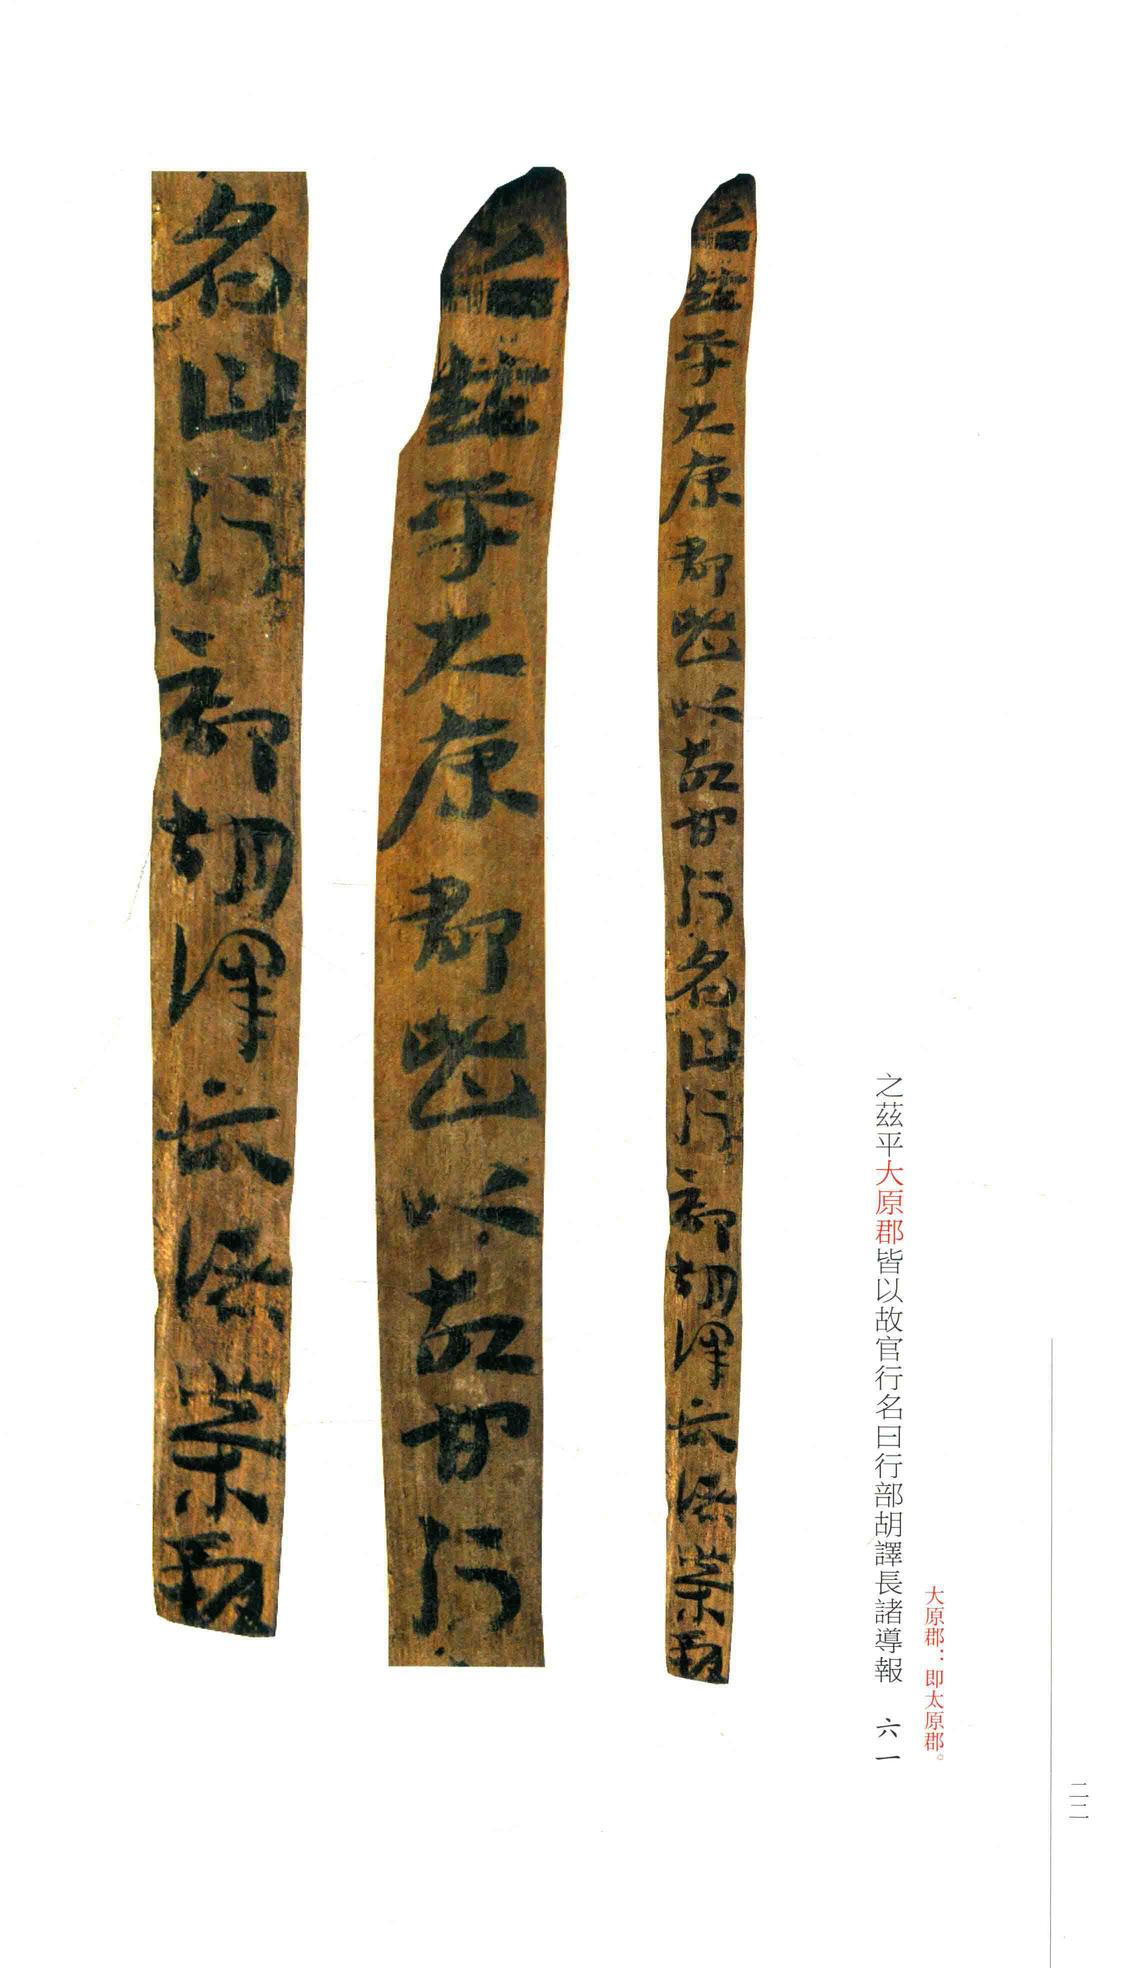 二二
大原郡：即太原郡。
之茲平大原郡皆以故官行名曰行部胡譯長諸導報 六一
之茲平大原郡皆以故官行名曰行部胡譯長諸導報
之茲平大原郡皆以故官行
名曰行部胡譯長諸導報